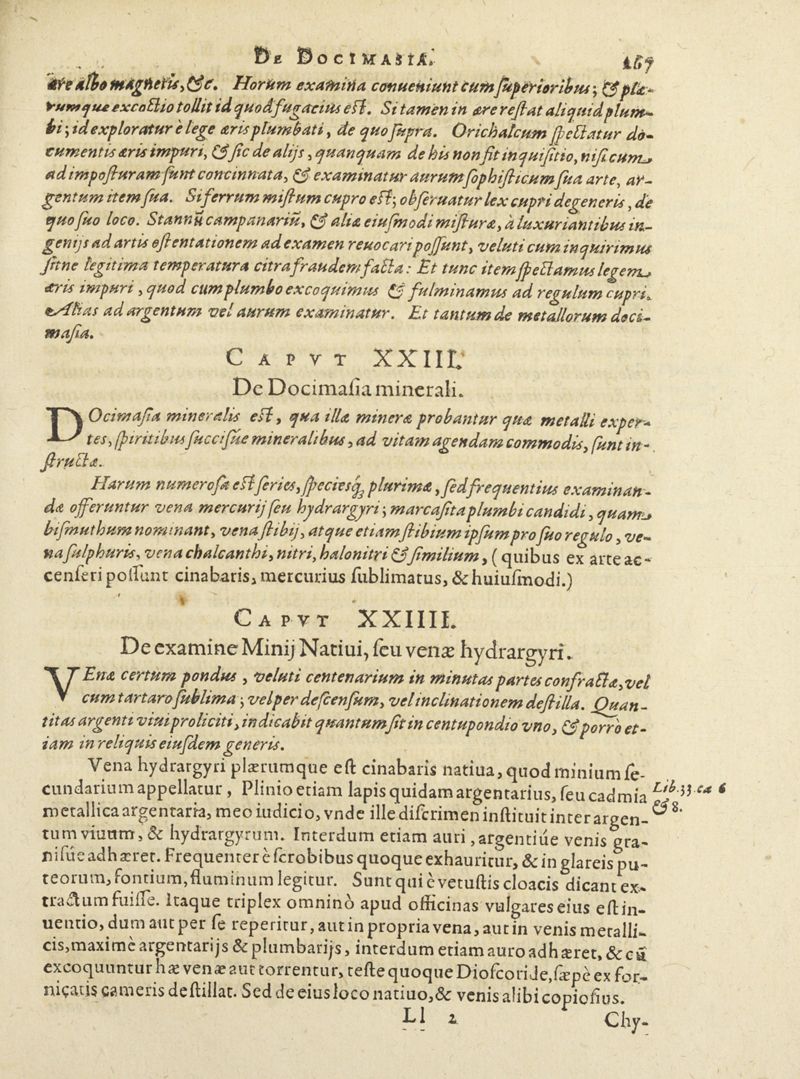 DE DOCIMASIA. 267
ære albo magnetis, &c. Horum examina conueniunt cum superioribus; & plæ-
rumque excoctio tollit id quod fugacius est. Si tamen in ære restat aliquid plum-
bi; id exploratur è lege æris plumbati, de quo supra. Orichalcum spectatur do-
cumentis æris impuri, & sic de alijs, quanquam de his non fit inquisitio, nisi cum
ad imposturam sunt concinnata, & examinatur aurum sophisticum sua arte, ar-
gentum item sua. Si ferrum mistum cupro est; obseruatur lex cupri degeneris, de
quo suo loco. Stannũ campanariũ, & alia eiusmodi misturæ, à luxuriantibus in-
genijs ad artis ostentationem ad examen reuocari possunt, veluti cum inquirimus
sitne legitima temperatura citra fraudem facta: Et tunc item spectamus legem
æris impuri, quod cum plumbo excoquimus & fulminamus ad regulum cupri.
Alias ad argentum vel aurum examinatur. Et tantum de metallorum doci-
masia.
CAPVT XXIII.
De Docimasia minerali.
DOcimasia mineralis est, qua illæ mineræ probantur quæ metalli exper-
tes, spiritibus succisue mineralibus, ad vitam agendam commodis, sunt in-
structæ.
Harum numerosa est series, speciesq; plurimæ, sed frequentius examinan-
dæ offeruntur vena mercurij seu hydrargyri; marcasita plumbi candidi, quam
bismuthum nominant, vena stibij, atque etiam stibium ipsum pro suo regulo, ve-
na sulphuris, vena chalcanthi, nitri, halonitri & similium, (quibus ex arte ac-
censeri possunt cinabaris, mercurius sublimatus, & huiusmodi.)
CAPVT XXIIII.
De examine Minij Natiui, seu venæ hydrargyri.
VEnæ certum pondus, veluti centenarium in minutas partes confractæ, vel
cum tartaro sublima; vel per descensum, vel inclinationem destilla. Quan-
titas argenti viui proliciti, indicabit quantum sit in centupondio vno, & porrò et-
iam in reliquis eiusdem generis.
Vena hydrargyri plærumque est cinabaris natiua, quod minium se-
cundarium appellatur, Plinio etiam lapis quidam argentarius, seu cadmia Lib. 33. ca 6
metallica argentaria, meo iudicio, vnde ille discrimen instituit inter argen- & 8.
tum viuum, & hydrargyrum. Interdum etiam auri, argentiúe venis gra-
nisúe adhæret. Frequenter è scrobibus quoque exhauritur, & in glareis pu-
teorum, fontium, fluminum legitur. Sunt qui è vetustis cloacis dicant ex-
tractum fuisse. Itaque triplex omninò apud officinas vulgares eius est in-
uentio, dum aut per se reperitur, aut in propria vena, aut in venis metalli-
cis, maximè argentarijs & plumbarijs, interdum etiam auro adhæret, & cũ
excoquuntur hæ venæ aut torrentur, teste quoque Dioscoride, sæpè ex for-
nicatis cameris destillat. Sed de eius loco natiuo, & venis alibi copiosius.
Ll 2 Chy-